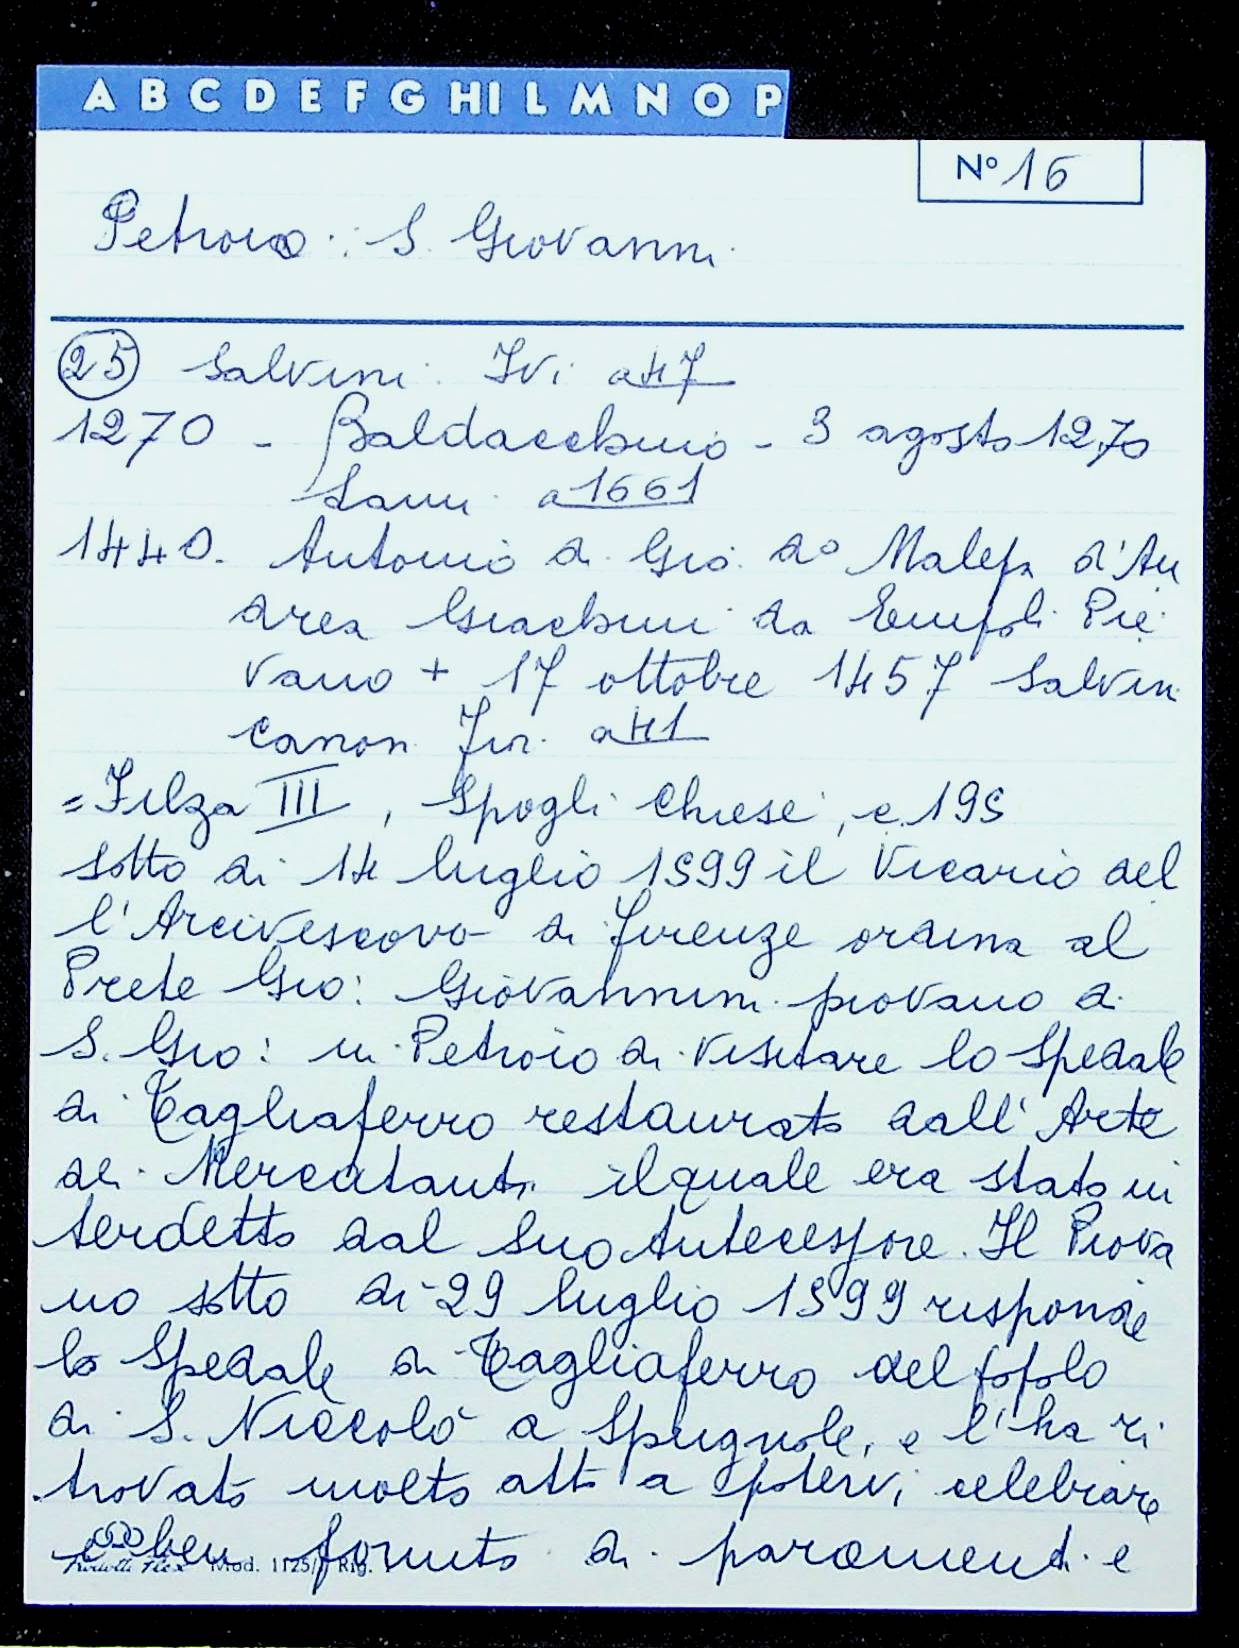 A B C D E F G HI L M N O P
Nº 16
Petroio: S. Giovanni
25 Salvini. Ivi a 47
1270 - Baldacchino - 3 agosto 1270
Lami a 1661
1440. Antonio di Gio. dº Malefa d'An
drea Giachini da Empoli Pie
vano + 17 ottobre 1457 Salvin
canon. Fir. a 41
= Filza III, Spogli Chiese, c. 195
sotto di 14 luglio 1599 il Vicario del
l'Arcivescovo di Firenze ordina al
Prete Gio: Giovannini piovano di
S. Gio: in Petroio di visitare lo Spedale
di Tagliaferro restaurato dall' Arte
dei Mercatanti il quale era stato in
terdetto dal suo Antecessore. Il Piova
no sotto di 29 luglio 1599 risponde
lo Spedale di Tagliaferro del popolo
di S. Niccolò a Spugnole, e l'ha ri
trovato molto atto a potervi celebrare
e ben fornito di paramenti e
Mod. 1125/ Rig.